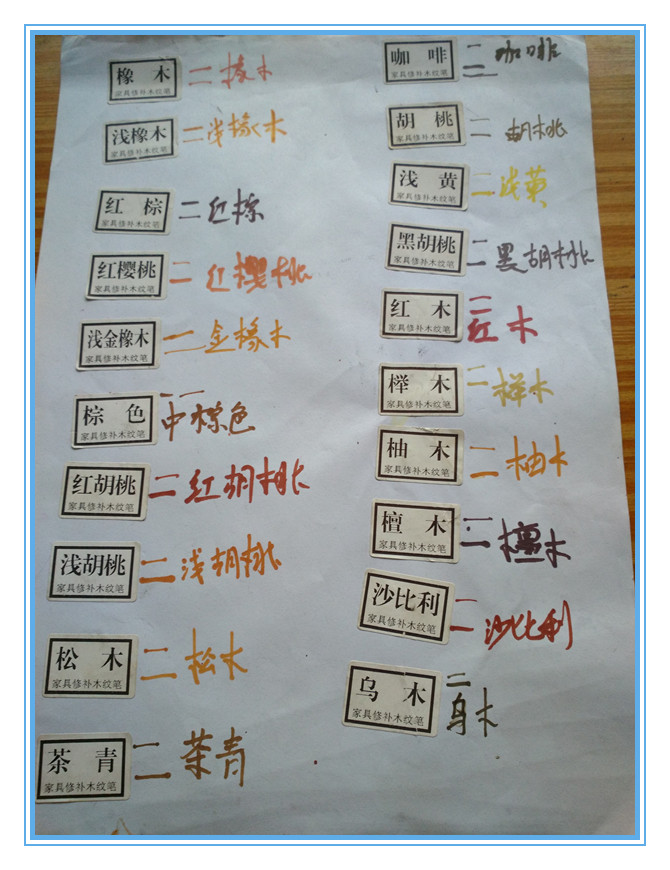 橡木
家具修补木纹笔
二 橡木
浅橡木
家具修补木纹笔
二 浅橡木
红棕
家具修补木纹笔
二 红棕
红樱桃
家具修补木纹笔
二 红樱桃
浅金橡木
家具修补木纹笔
二 金橡木
棕色
家具修补木纹笔
二 中棕色
红胡桃
家具修补木纹笔
二 红胡桃
浅胡桃
家具修补木纹笔
二 浅胡桃
松木
家具修补木纹笔
二 松木
茶青
家具修补木纹笔
二 茶青
咖啡
家具修补木纹笔
二 咖啡
胡桃
家具修补木纹笔
二 胡桃
浅黄
家具修补木纹笔
二 浅黄
黑胡桃
家具修补木纹笔
二 黑胡桃
红木
家具修补木纹笔
二 红木
榉木
家具修补木纹笔
二 榉木
柚木
家具修补木纹笔
二 柚木
檀木
家具修补木纹笔
二 檀木
沙比利
家具修补木纹笔
二 沙比利
乌木
家具修补木纹笔
二 乌木